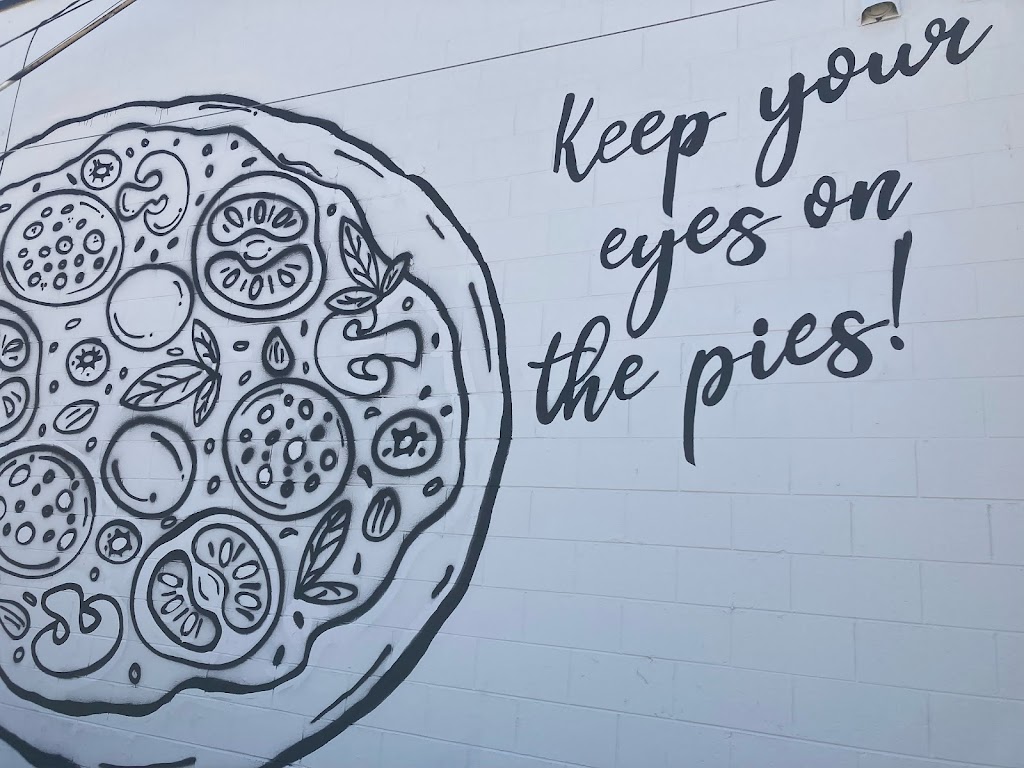 Keep your
eyes on
the pies!